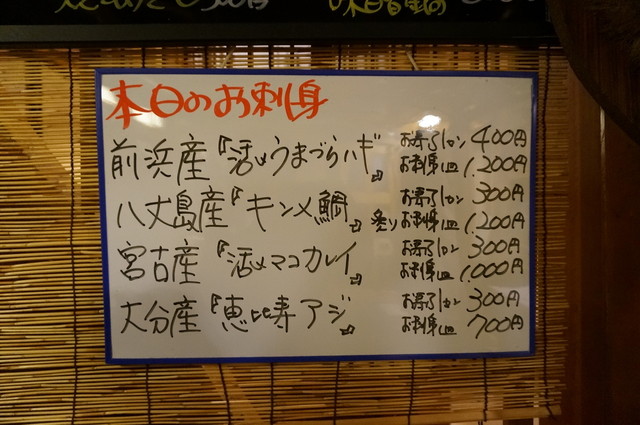 本日のお刺身
前浜産『活〆うまづらハギ』 お寿司1カン 400円
お刺身1皿 1,200円
八丈島産『キンメ鯛』炙り お寿司1カン 300円
お刺身1皿 1,200円
宮古産『活〆マコカレイ』 お寿司1カン 300円
お刺身1皿 1,000円
大分産『恵比寿アジ』 お寿司1カン 300円
お刺身1皿 700円